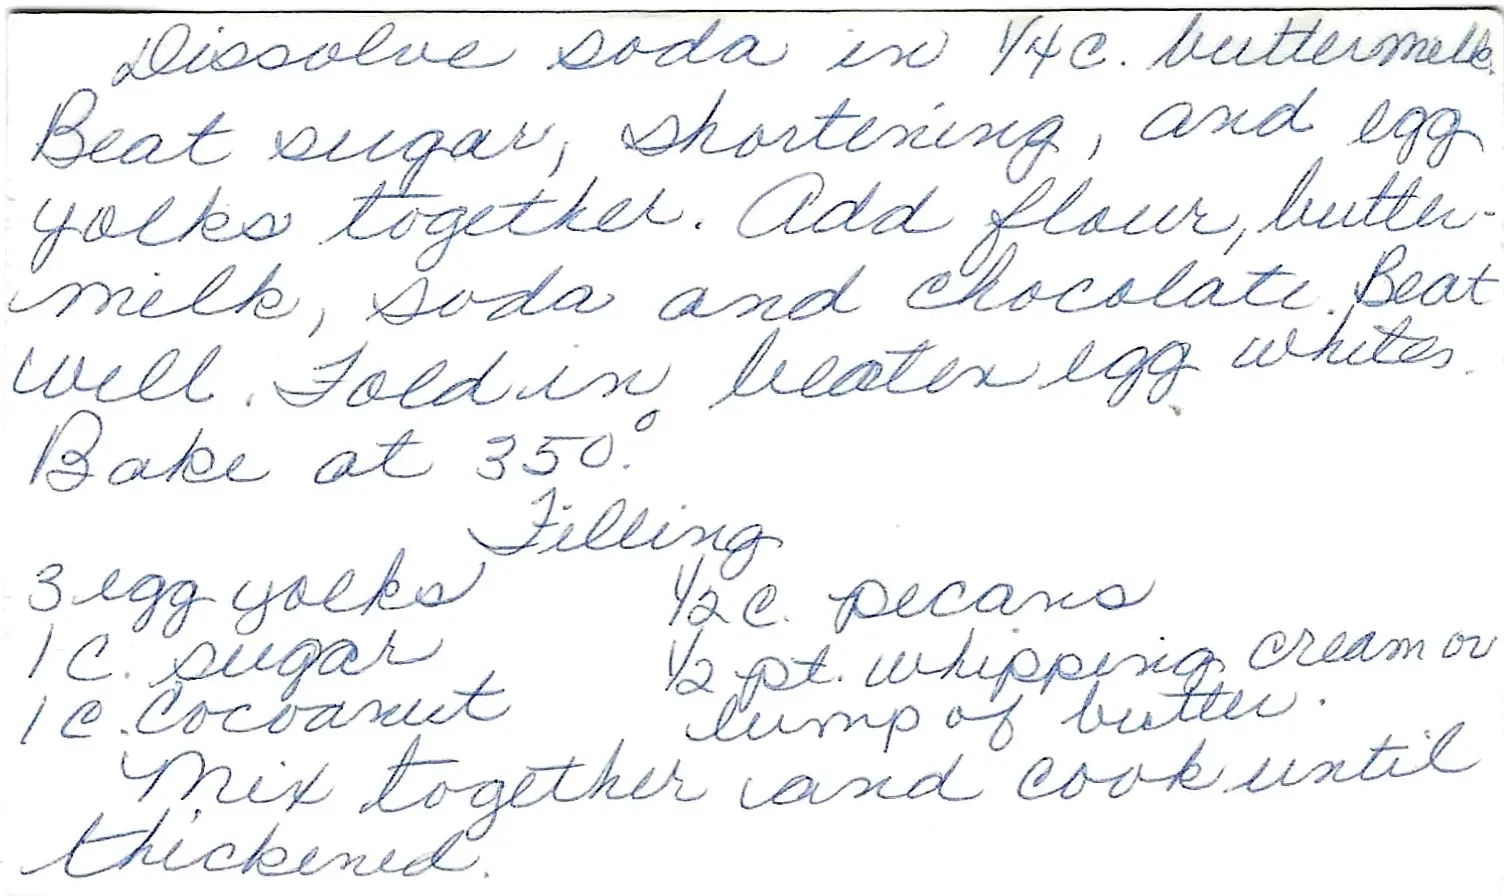 Dissolve soda in 1/4 c. buttermilk.
Beat sugar, shortening, and egg
yolks together. Add flour, butter-
milk, soda and chocolate. Beat
well. Fold in beaten egg whites.
Bake at 350°.
Filling
3 egg yolks 1/2 c. pecans
1 c. sugar 1/2 pt. whipping cream or
1 c. Cocoanut lump of butter.
Mix together and cook until
thickened.